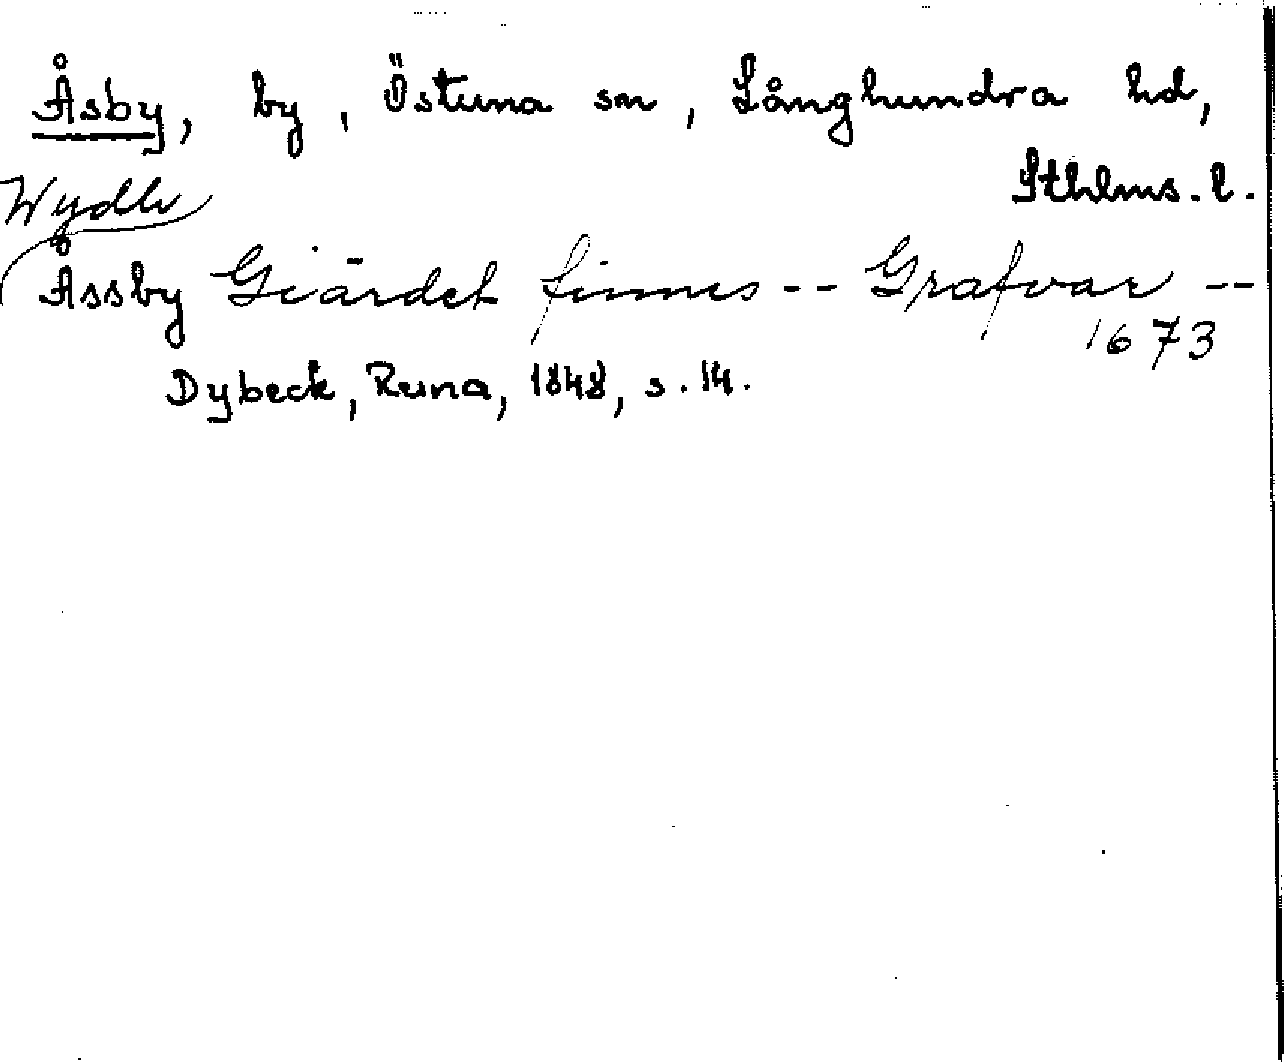 Åsby, by, Östuna sn, Långhundra hd,
Sthlms. l.
Wydh
Åssby Giärdet finnes -- Grafvar --
1673
Dybeck, Runa, 1848, s. 14.